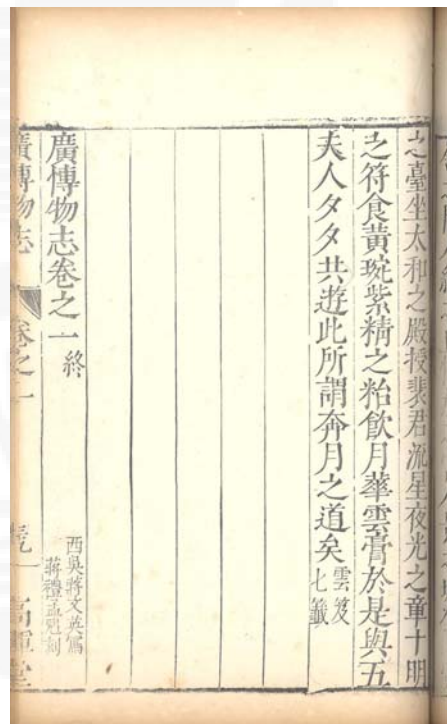 之臺坐太和之殿授裴君流星夜光之童十明
之符食黃琬紫精之粭飲月華雲膏於是與五
夫人夕夕共遊此所謂奔月之道矣雲笈七籤
廣博物志卷之一終
西吳蔣文英寫
蔣禮孟刻
廣博物志
卷之一
高暉堂